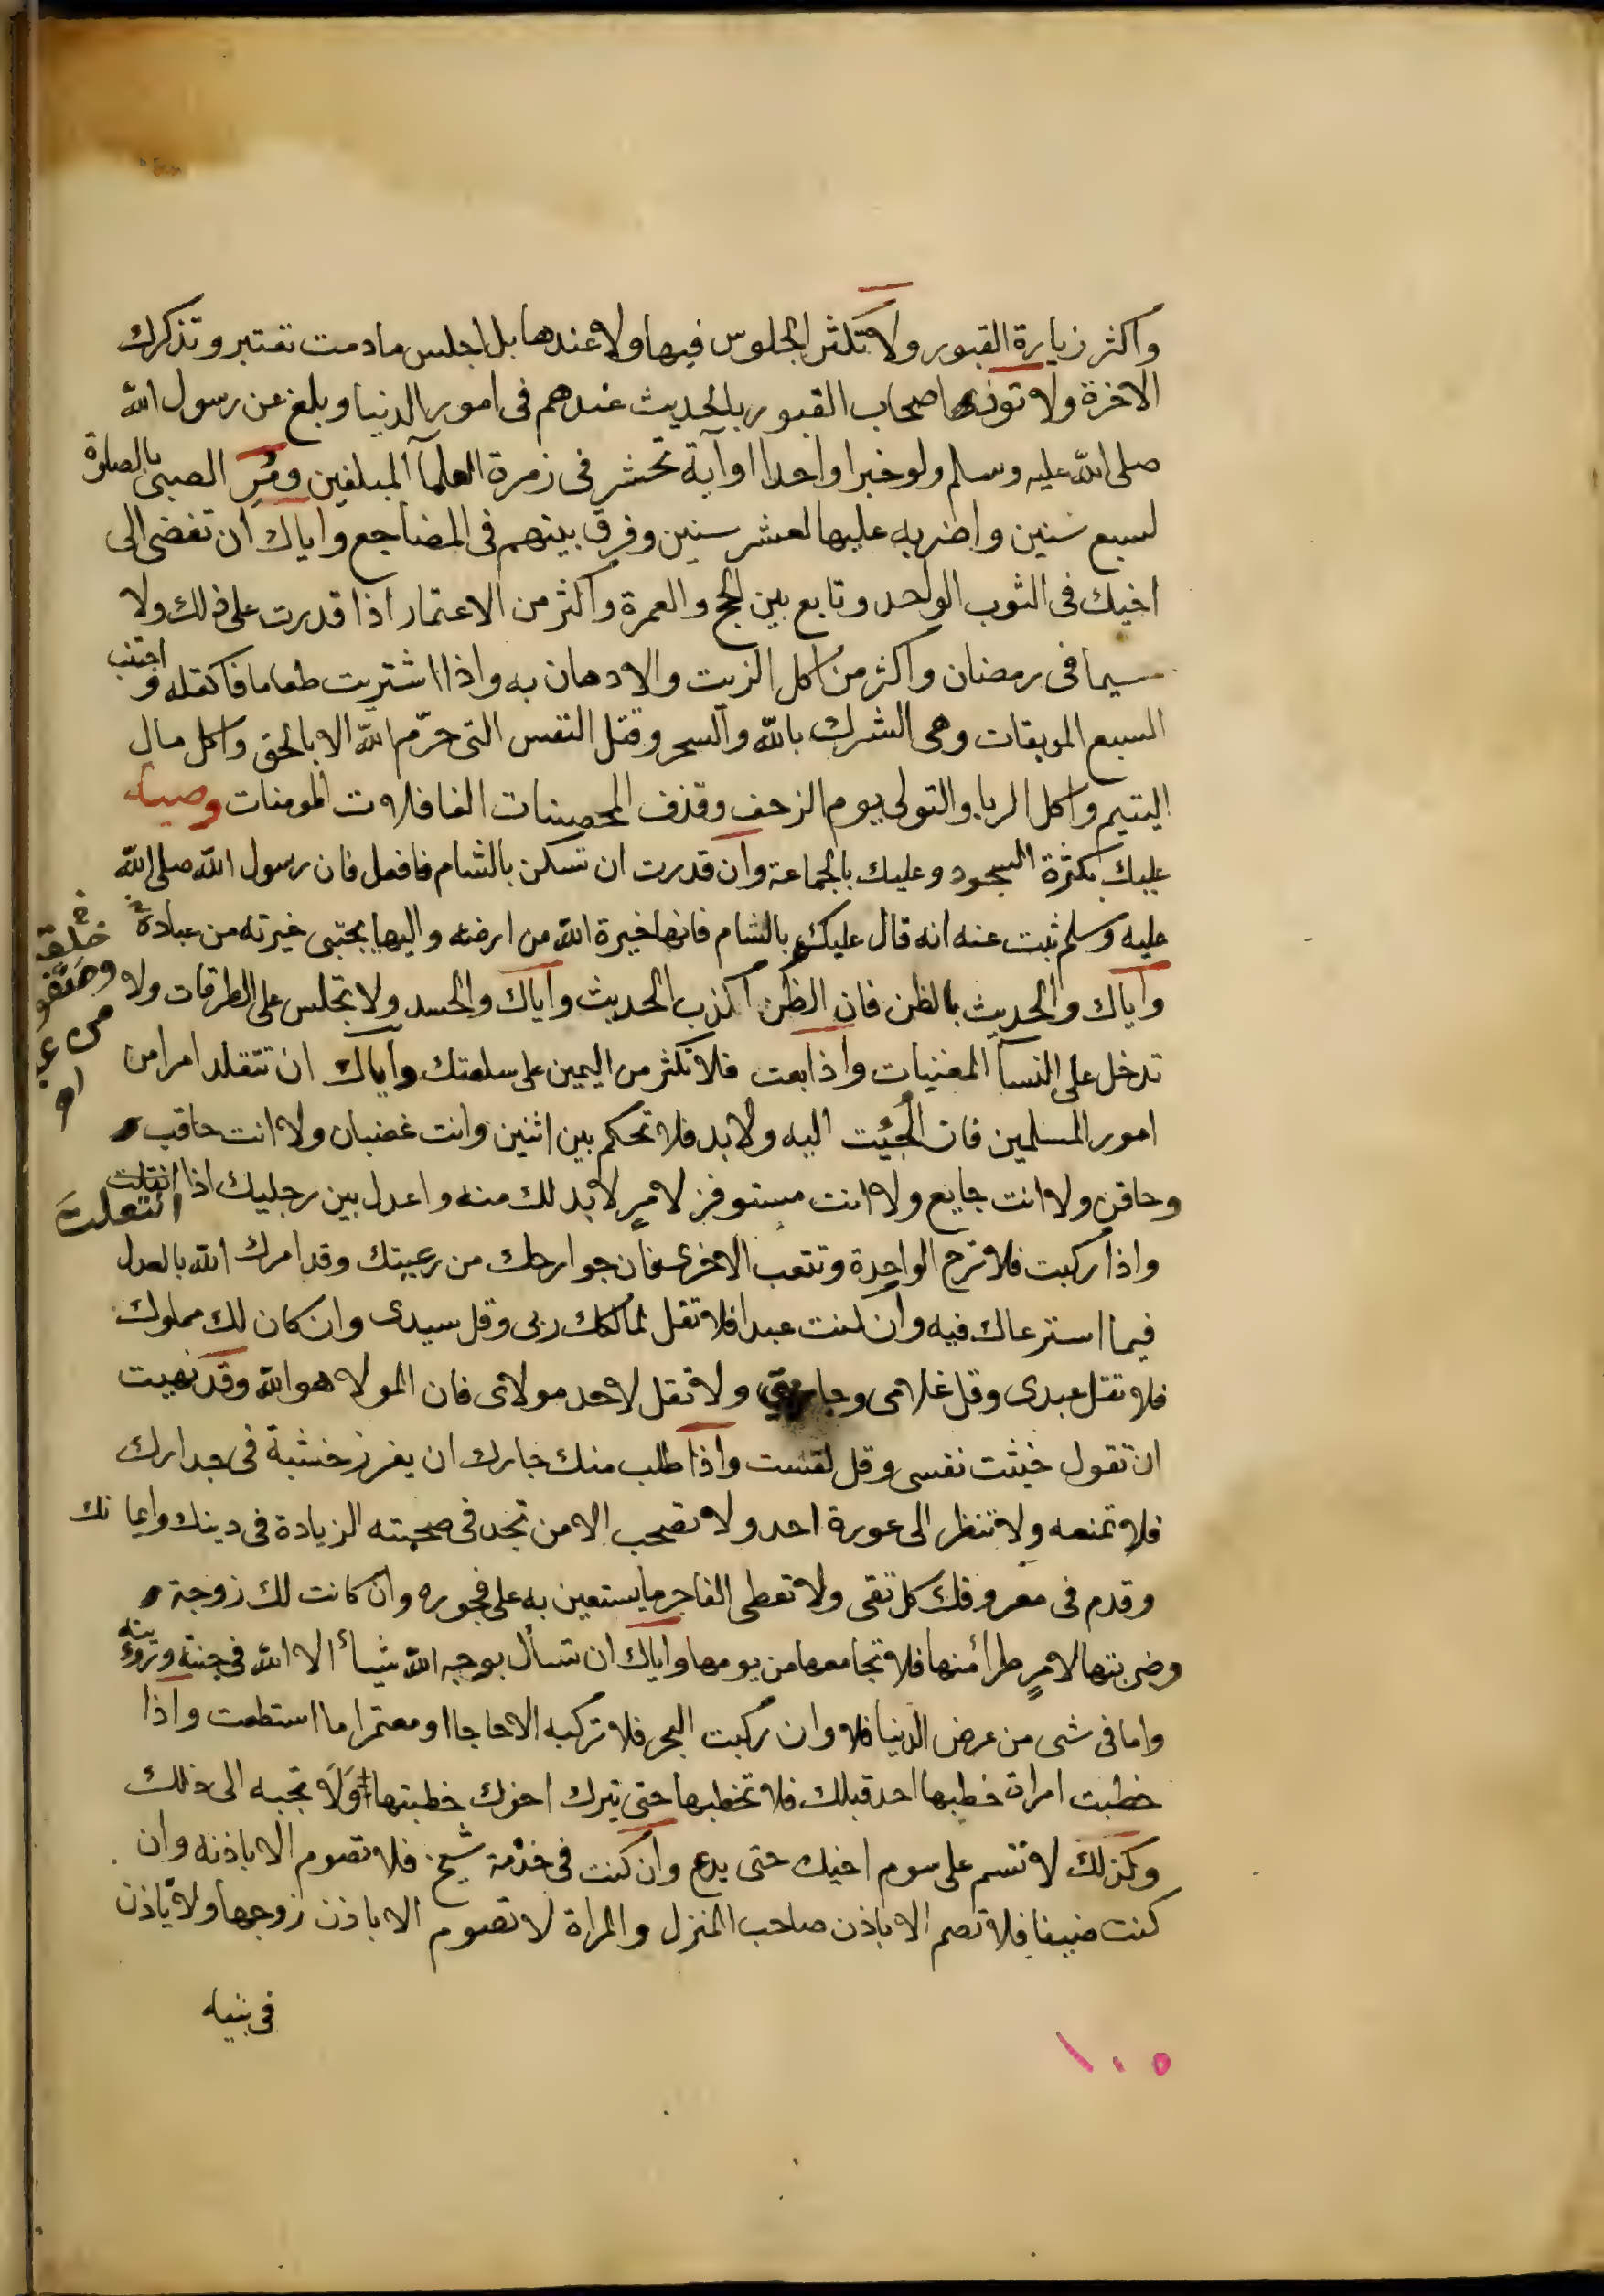 واكثر زيارة القبور ولا تكثر الجلوس فيها ولا عندها بل اجلس مادمت تعتبر وتذكرك
الاخرة ولا توذى اصحاب القبور بالحديث عندهم فى امور الدنيا وبلغ عن رسول الله
صلى الله عليه وسلم ولو خبرا واحدا او آية تحشر فى زمرة العلمآ المبلغين ومُرِ الصبى بالصلوة
لسبع سنين واضربه عليها لعشر سنين وفرق بينهم فى المضاجع واياك ان تفضى الى
اخيك فى الثوب الواحد وتابع بين الحج والعمرة واكثر من الاعتمار اذا قدرت على ذلك ولا
سيما فى رمضان واكثر من اكل الزيت والادهان به واذا اشتريت طعاما فاكتله و اجتنب
السبع الموبقات وهى الشرك بالله والسحر وقتل النفس التى حرّم الله الا بالحق واكل مال
اليتيم واكل الربا والتولى يوم الزحف وقذف المحصنات الغافلات المومنات وصيه
عليك بكثرة السجود وعليك بالجماعة وان قدرت ان تسكن بالشام فافعل فان رسول الله صلى الله
عليه وسلم ثبت عنه انه قال عليكم بالشام فانها خيرة الله من ارضه واليها يجتبى خيرته من عباده
واياك والحديث بالظن فان الظن اكذب الحديث واياك والحسد ولا تجلس على الطرقات ولا
تدخل على النسآ المغنيات واذا بعت فلا تكثر من اليمين على سلعتك واياك ان تتقلد امرا من
امور المسلمين فان الجئت اليه ولابد فلا تحكم بين اثنين وانت غضبان ولا انت حاقب
وحاقن ولا انت جايع ولا انت مستوفز لامرٍ لابد لك منه واعدل بين رجليك اذا انتعلت
انتعلتَ
واذا ركبت فلا ترح الواحدة وتتعب الاخرى فان جوارحك من رعيتك وقد امرك الله بالعدل
فيما استرعاك فيه وان كنت عبدا فلا تقل لمالكك ربى وقل سيدى وان كان لك مملوك
فلا تقل عبدى وقل غلامى وجاريتي ولا تقل لاحد مولاى فان المولا هو الله وقد نهيت
ان تقول خبثت نفسى وقل لقست واذا طلب منك جارك ان يغرز خشبة فى جدارك
فلا تمنعه ولا تنظر الى عورة احد ولا تصحب الا من تجد فى صحبته الزيادة فى دينك وايمانك
وقدم فى معروفك كل تقى ولا تعطى الفاجر ما يستعين به على فجوره وان كانت لك زوجة
وضربتها لامرٍ طرأ منها فلا تجامعها من يومها واياك ان تسأل بوجه الله شيأ الا الله فى جنته ورؤيته
واما فى شى من عرض الدنيا فلا وان ركبت البحر فلا تركبه الا حاجا او معتمرا ما استطعت واذا
خطبت امراة خطبها احد قبلك فلا تخطبها حتى يترك اخوك خطبتها وَلَا تجبه الى ذلك
وكذلك لا تسم على سوم اخيك حتى يدع وان كنت فى خدمة شيخ فلا تصوم الا باذنه وان
كنت ضيفا فلا تصم الا باذن صاحب المنزل والمراة لا تصوم الا باذن زوجها ولا ياذن
فى بيته
١٠٥